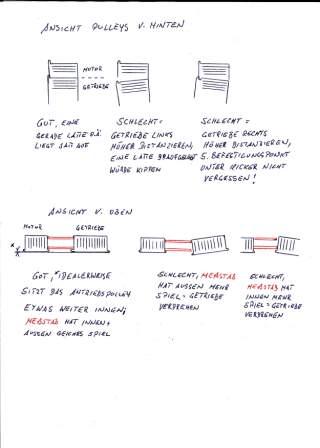 ANSICHT PULLEYS V. HINTEN
MOTOR
GETRIEBE
GUT, EINE
GERADE LATTE O.Ä.
LIEGT SATT AUF
SCHLECHT=
GETRIEBE LINKS
HÖHER DISTANZIEREN,
EINE LATTE DRAUFGELEGT
WÜRDE KIPPEN
SCHLECHT =
GETRIEBE RECHTS
HÖHER DISTANZIEREN,
5. BEFESTIGUNGSPUNKT
UNTER RICKER NICHT
VERGESSEN!
ANSICHT V. OBEN
MOTOR
GETRIEBE
x
GUT, *IDEALERWEISE
SITZT DAS ANTRIEBSPULLEY
ETWAS WEITER INNEN;
MEßSTAB HAT INNEN+
AUSSEN GLEICHES SPIEL
SCHLECHT, MEßSTAB
HAT AUSSEN MEHR
SPIEL= GETRIEBE
VERDREHEN
SCHLECHT,
MEßSTAB HAT
INNEN MEHR
SPIEL= GETRIEBE
VERDREHEN